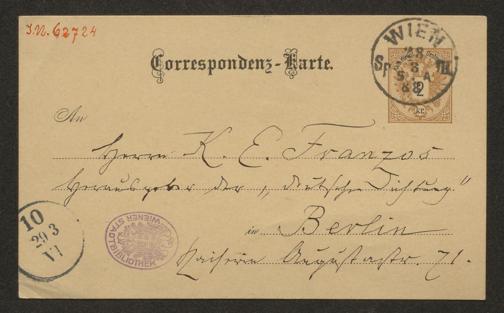 J.N. 62724
WIEN
28
3
88
Correspondenz-Karte.
2
kr.
An
Herrn K. E. Franzos
Herausgeber der „Deutschen Dichtung"
in Berlin
Kaiserin Augustastr. 71.
10
29 3
VI
WIENER STADTBIBLIOTHEK